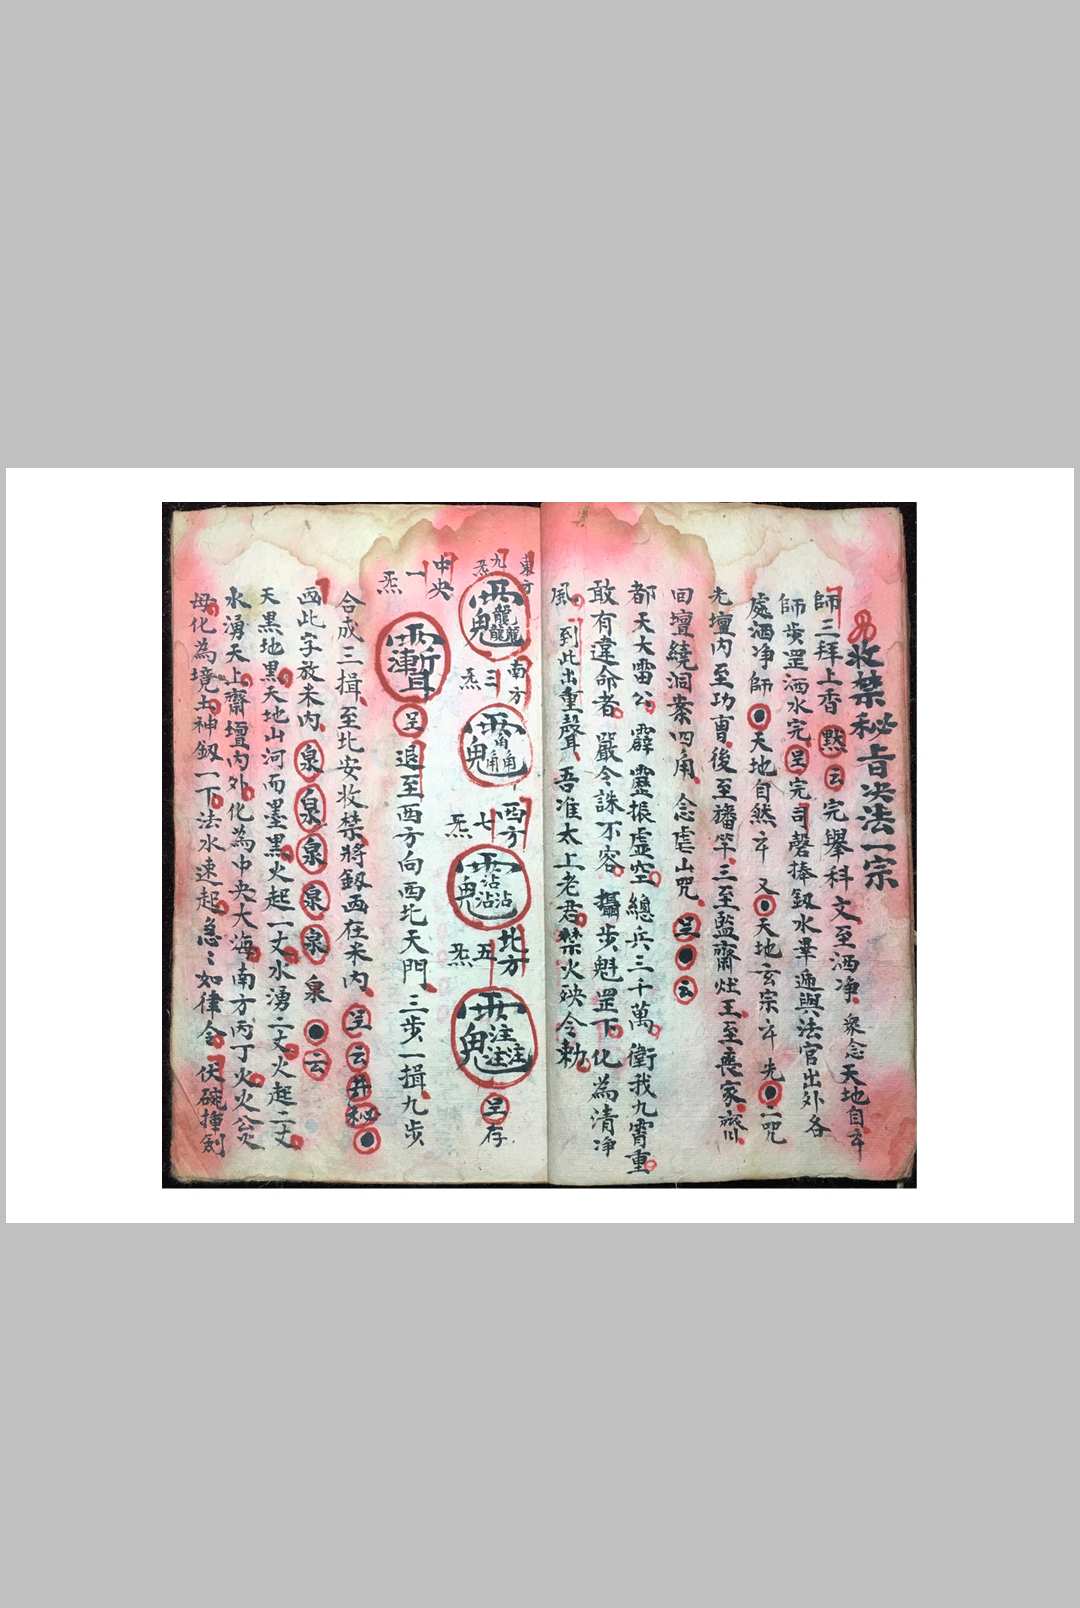 收禁秘旨決法一宗
師三拜上香 默云 完舉科文至洒净 衆念天地自
師步罡洒水完 完司磬捧釼水畢逓與法官出外各
處洒净師 天地自然 又 天地玄宗 先 二咒
先壇内至功曹後至旛竿三至監齋灶王至丧家
回壇繞洞案四角 念虐山咒 云
都天大雷公 霹靂振虚空 總兵三十萬 衛我九霄重
敢有違命者 嚴令誅不容 攝步魁罡下 化為清净
風 到此出重聲 吾准太上老君禁火殃令勅
東方九炁 南方三炁 西方七炁 北方五炁 存
中央一炁 退至西方向西北天門三步一揖九步
合成三揖 至北安收禁將釼画在米内 云井秘
画此字放米内 泉泉泉泉泉泉 云
天黑地黑天地山河而墨黑火起一丈水湧二丈火起二丈
水湧天上齋壇内外化為中央大海南方丙丁火火公火
母化為境土神釼一下法水速起急〻如律令 伏碗揮剑